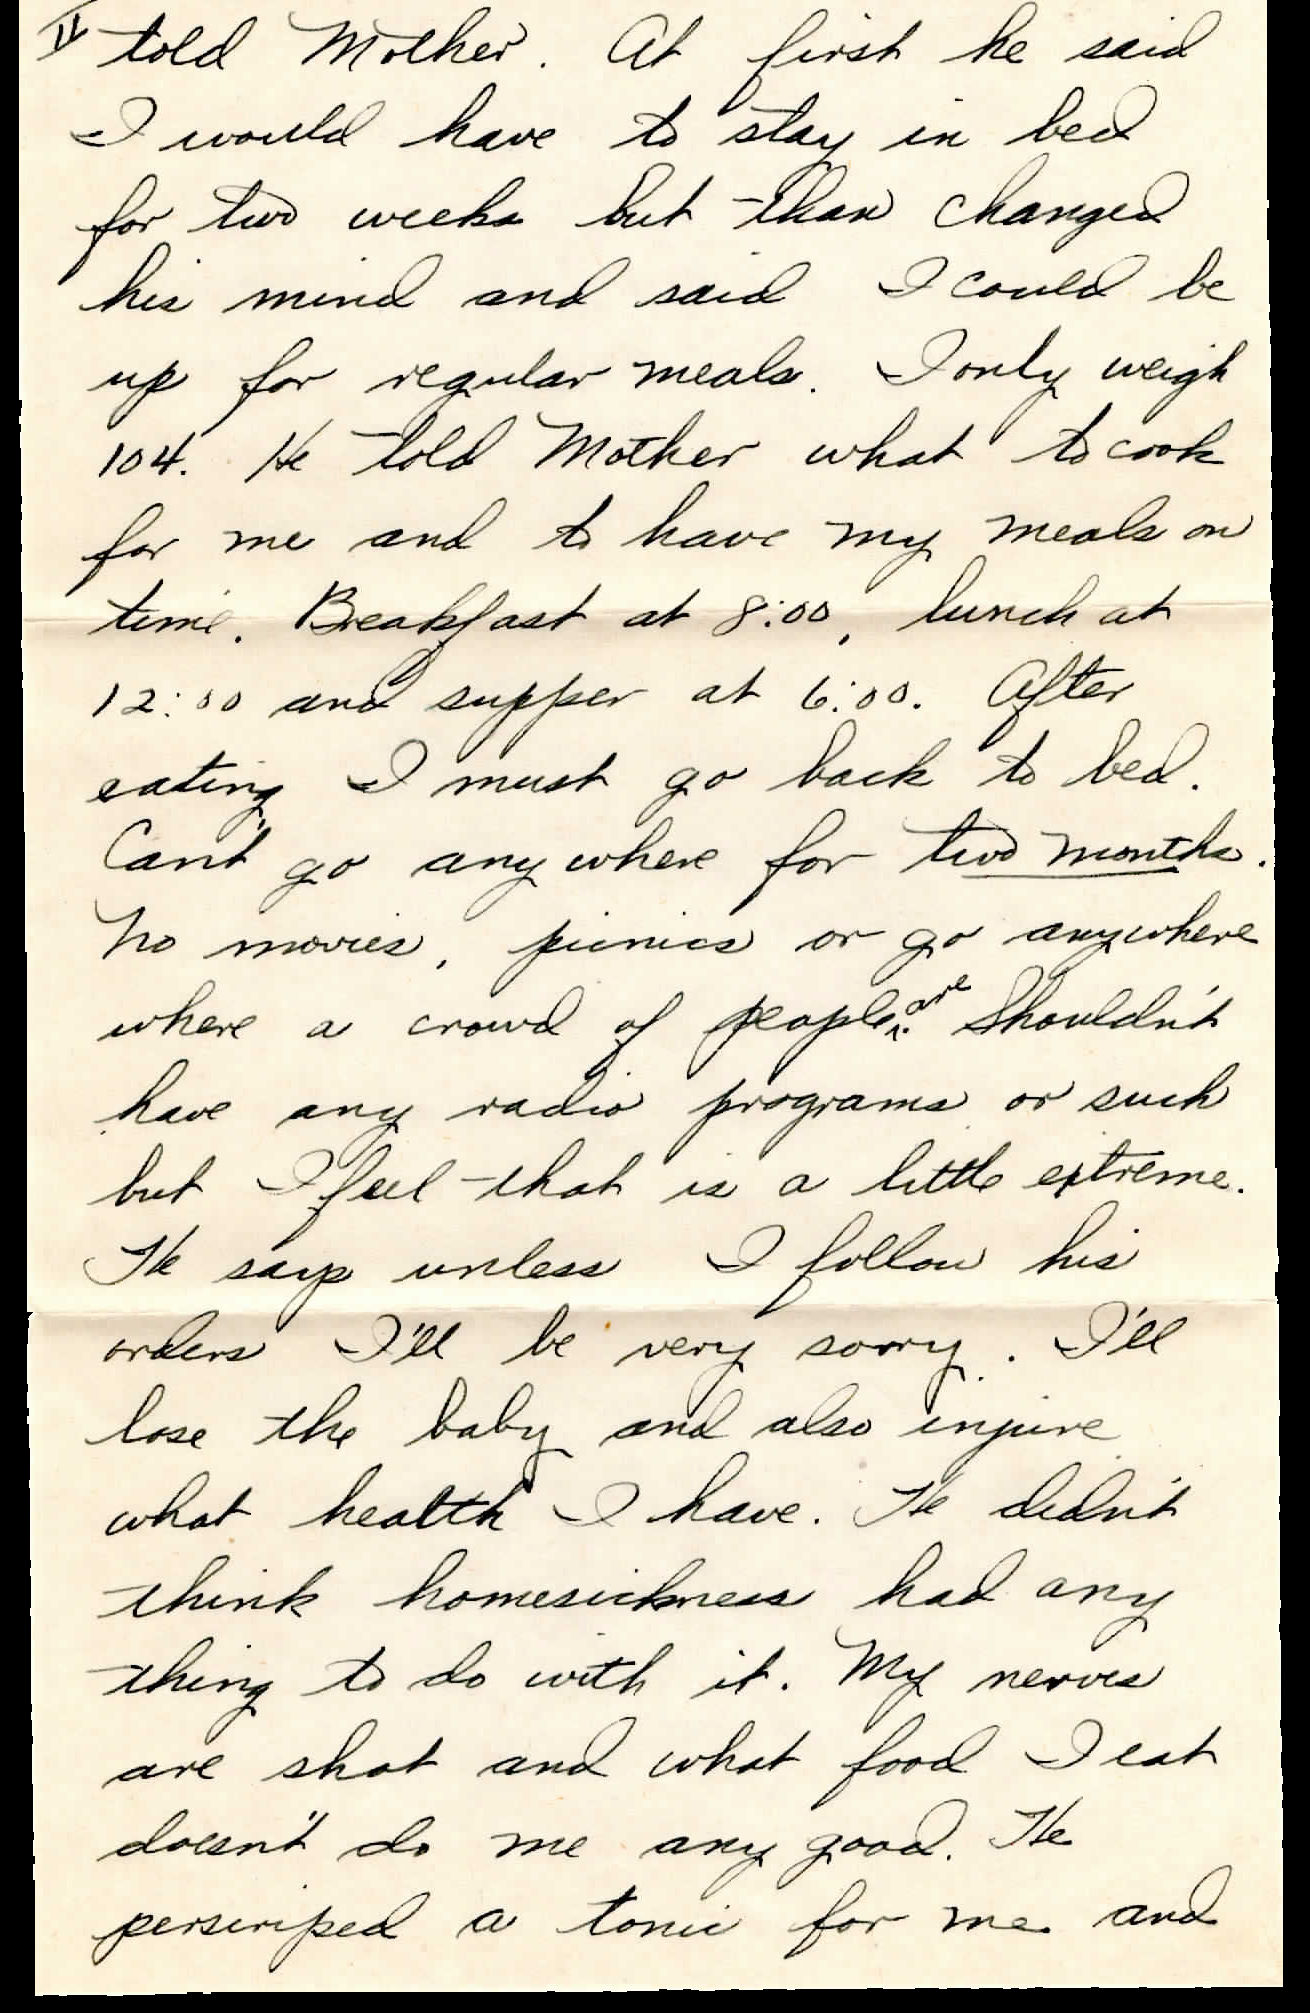 II told Mother. At first he said
I would have to stay in bed
for two weeks but than changed
his mind and said I could be
up for regular meals. I only weigh
104. He told Mother what to cook
for me and to have my meals on
time. Breakfast at 8:00, lunch at
12:00 and supper at 6:00. After
eating I must go back to bed.
Can't go any where for two months.
No movies, picnics or go anywhere
where a crowd of people are. Shouldn't
have any radio programs or such
but I feel that is a little extreme.
He says unless I follow his
orders I'll be very sorry. I'll
lose the baby and also injure
what health I have. He didn't
think homesickness had any
thing to do with it. My nerves
are shot and what food I eat
doesn't do me any good. He
perscriped a tonic for me and